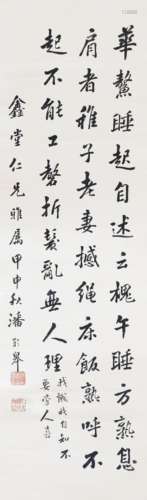 華鰲睡起自述云槐午睡方熟息
肩者稚子老妻撼繩床飯熟呼不
起不能工磬折髮亂無人理
我懶我自知不
要常人喜
鑫堂仁兄雅属甲申秋潘齡皋